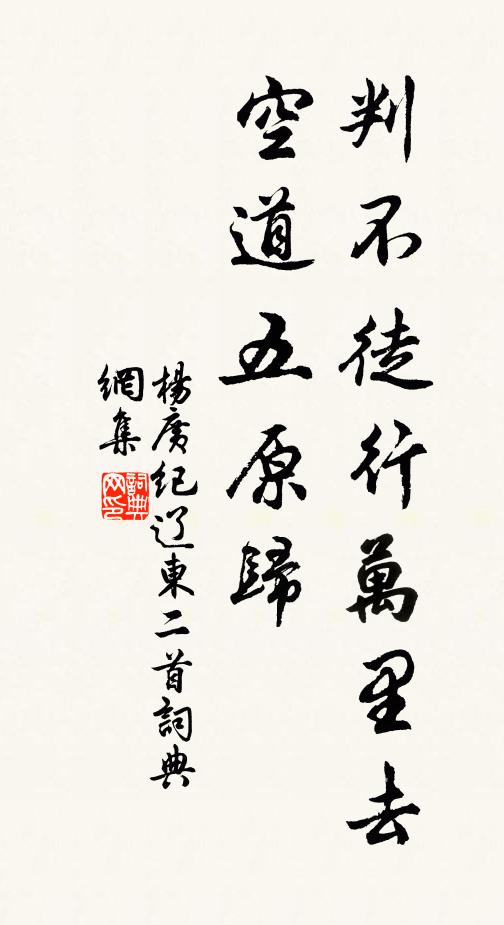 判不徒行萬里去
空道五原歸
楊廣紀辽東二首詞典
網集
詞典
网印